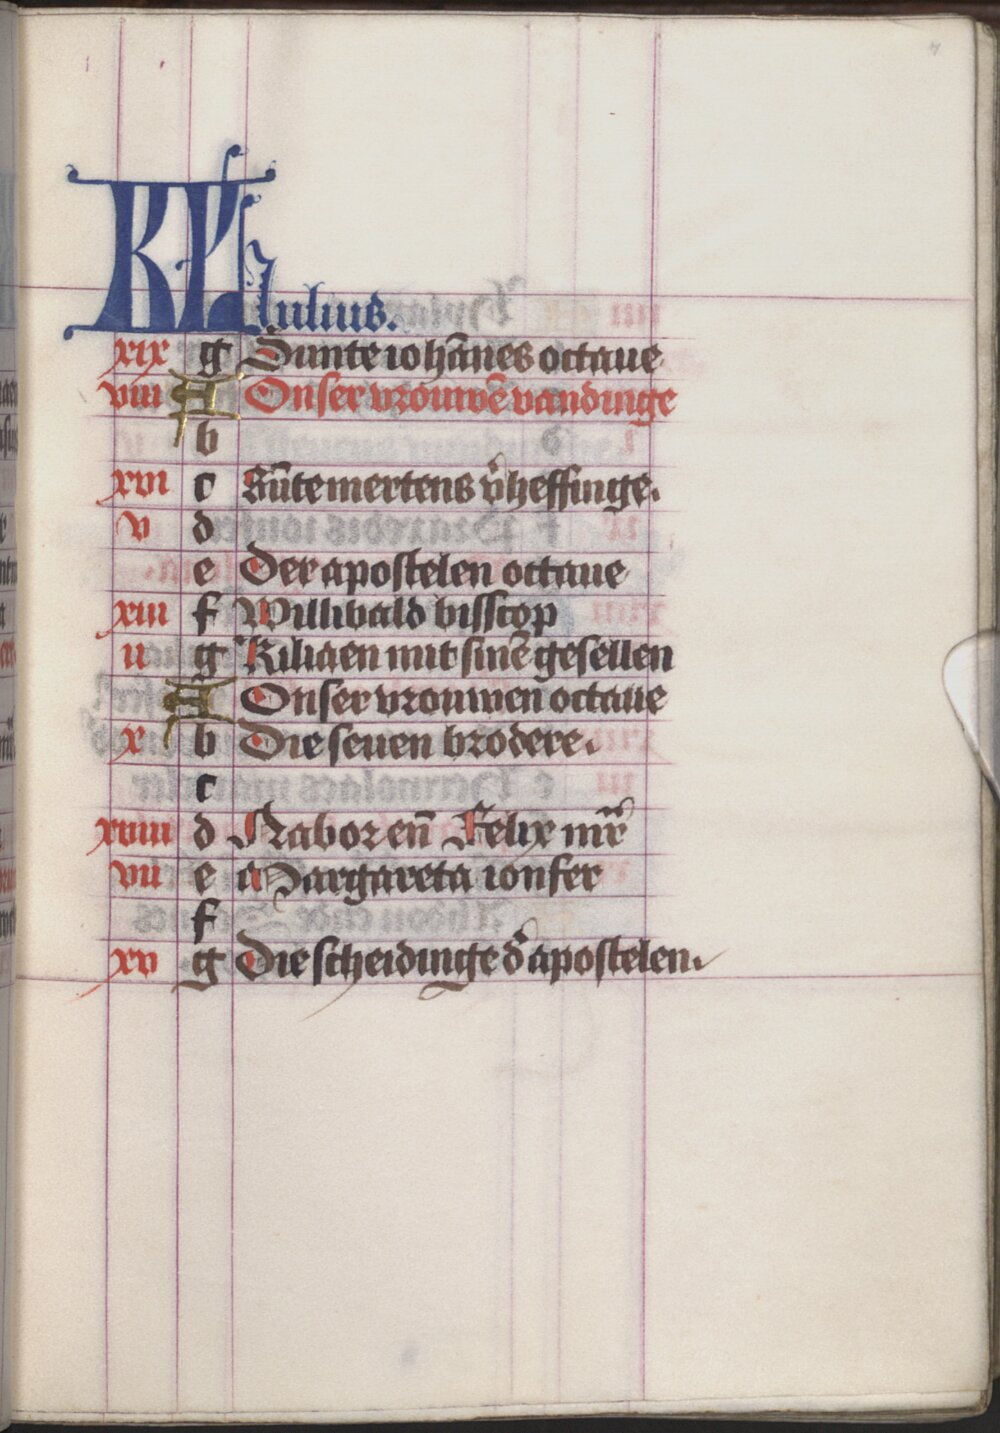 KL Iulius.
xix g Sunte iohānes octaue
viii A Onser vrouwē vandinge
b
xvi c Sūte mertens v̓heffinge.
v d
e Der apostelen octaue
xiii f Willibald bisscop
ii g Kiliaen mit sinē gesellen
A Onser vrouwen octaue
x b Die seuen brodere.
c
xviii d Nabor eñ Felix mr̄e
vii e Margareta ionfer
f
xv g Die scheidinge d̓ apostelen.